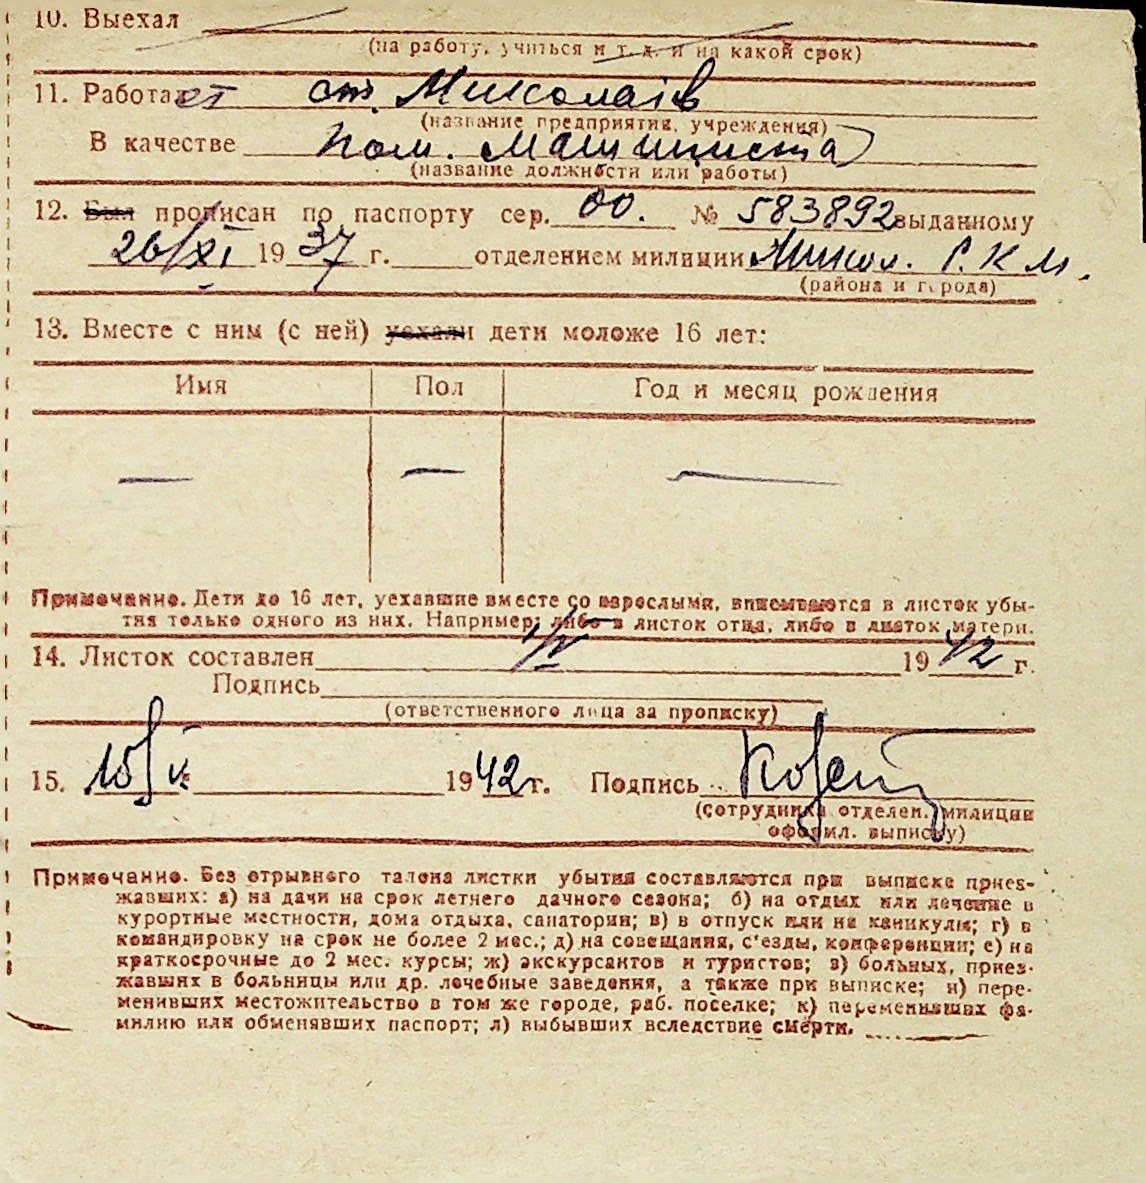 10. Выехал
(на работу, учиться и т. д. и на какой срок)
11. Работает ст. Миколаїв
(название предприятия, учреждения)
В качестве пом. машиниста
(название должности или работы)
12. Был прописан по паспорту сер. 00. № 583892 выданному
26/XI 1937 г. отделением милиции Микол. Р. К. М.
(района и города)
13. Вместе с ним (с ней) уехали дети моложе 16 лет:
Имя Пол Год и месяц рождения
— — —
Примечание. Дети до 16 лет, уехавшие вместе со взрослыми, вписываются в листок убы-
тия только одного из них. Например: либо в листок отца, либо в листок матери.
14. Листок составлен 1/V 1942 г.
Подпись
(ответственного лица за прописку)
15. 10/V 1942 г. Подпись
(сотрудника отделен. милиции
оформл. выписку)
Примечание. Без отрывного талона листки убытия составляются при выписке приез-
жавших: а) на дачи на срок летнего дачного сезона; б) на отдых или лечение в
курортные местности, дома отдыха, санатории; в) в отпуск или на каникулы; г) в
командировку на срок не более 2 мес.; д) на совещания, с'езды, конференции; е) на
краткосрочные до 2 мес. курсы; ж) экскурсантов и туристов; з) больных, приез-
жавших в больницы или др. лечебные заведения, а также при выписке; и) пере-
менивших местожительство в том же городе, раб. поселке; к) переменивших фа-
милию или обменявших паспорт; л) выбывших вследствие смерти.